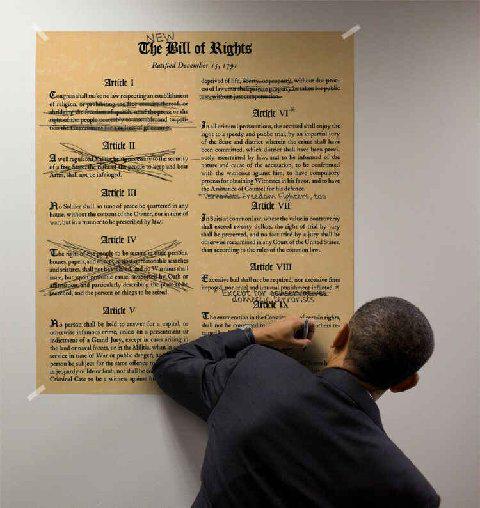 NEW
The Bill of Rights
Ratified December 15, 1791
Article I
Congress shall make no law respecting an establishment
of religion, or prohibiting the free exercise thereof, or
abridging the freedom of
Article II
A well regulated to the security
of a free the right to keep and bear
Arms, shall not be infringed.
Article III
No Soldier shall in time of peace be quartered in any
house, without the consent of the Owner, nor in time of
war, but in a manner to be prescribed by law.
Article IV
The right of the people to be secure in their persons,
houses, papers, and effects, against unreasonable searches
and seizures, shall not be violated, and no Warrants shall
issue, but upon probable cause, supported by Oath or
affirmation, and particularly describing the place to be
searched, and the persons or things to be seized.
Article V
No person shall be held to answer for a capital, or
otherwise infamous crime, unless on a presentment or
indictment of a Grand Jury, except in cases arising in
the land or naval forces, or in the Militia, when in actual
service in time of War or public danger; nor shall any
person be subject for the same offense to be
in jeopardy of life or limb; nor shall be
Criminal Case to be a witness against
deprived of life, liberty, or property, without due proc-
ess of law; nor shall private property be taken for public
use, without just compensation.
Article VI*
In all criminal prosecutions, the accused shall enjoy the
right to a speedy and public trial, by an impartial jury
of the State and district wherein the crime shall have
been committed, which district shall have been previ-
ously ascertained by law, and to be informed of the
nature and cause of the accusation; to be confronted
with the witnesses against him; to have compulsory
process for obtaining Witnesses in his favor, and to have
the Assistance of Counsel for his defence.
*Terrorists Freedom Fighters, too
Article VII
In Suits at common law, where the value in controversy
shall exceed twenty dollars, the right of trial by jury
shall be preserved, and no fact tried by a jury shall be
otherwise reexamined in any Court of the United States,
than according to the rules of the common law.
Article VIII
Excessive bail shall not be required, nor excessive fines
imposed, nor cruel and unusual punishments inflicted
Except for conservatives
domestic terrorists
Article IX
The enumeration in the Constitution of certain rights,
shall not be